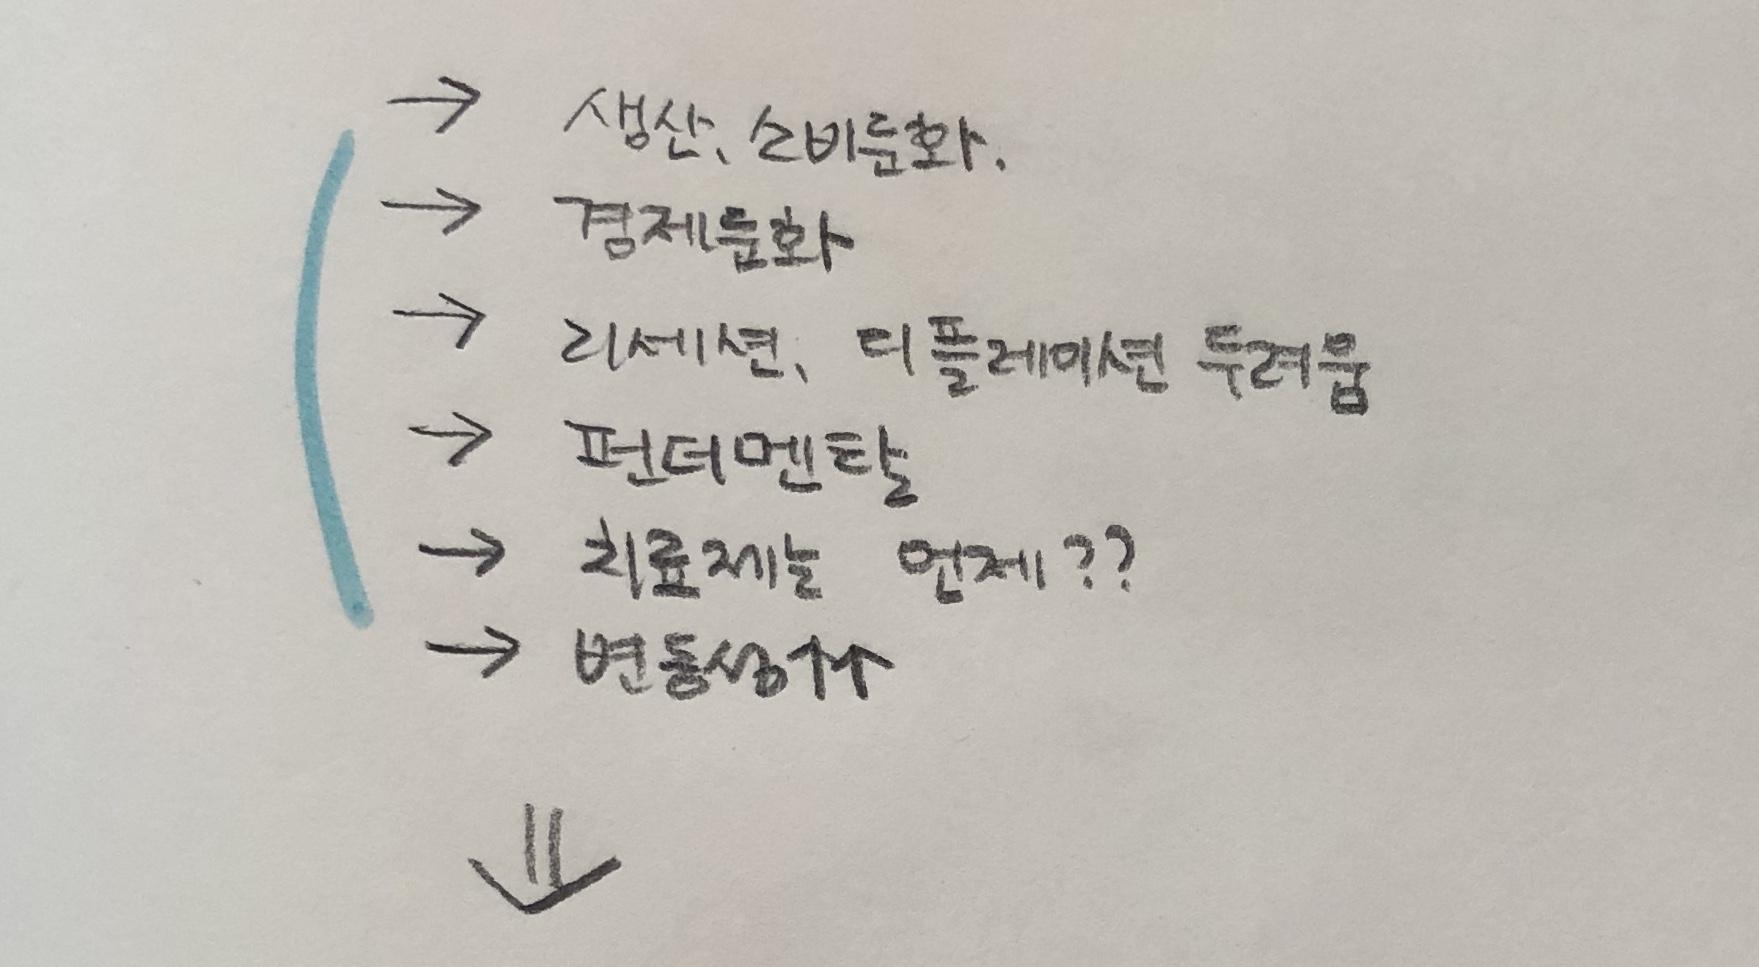 → 생산, 소비둔화.
→ 경제둔화
→ 리세션, 디플레이션 두려움
→ 펀더멘탈
→ 치료제는 언제??
→ 변동성↑↑
⇓